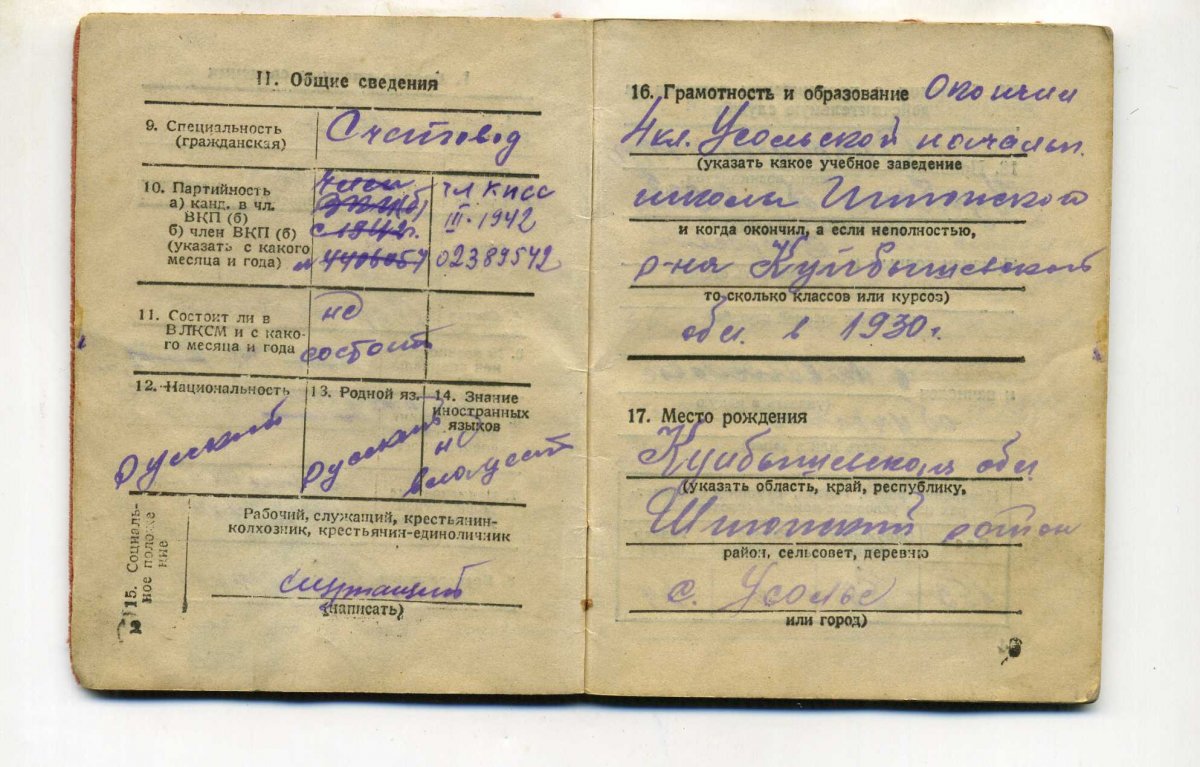 II. Общие сведения
9. Специальность
(гражданская)
Счетовод
10. Партийность
а) канд. в чл.
ВКП (б)
б) член ВКП (б)
(указать с какого
месяца и года)
член
ВКП(б)
с 1942г.
№ 4406057
чл КПСС
III-1942
02389542
11. Состоит ли в
ВЛКСМ и с како-
го месяца и года
не
состоит
12. Национальность
русский
13. Родной яз.
русский
14. Знание
иностранных
языков
не
владеет
15. Социаль-
ное положе
ние
Рабочий, служащий, крестьянин-
колхозник, крестьянин-единоличник
служащий
(написать)
16. Грамотность и образование Окончил
4 кл. Усольской начальн.
(указать какое учебное заведение
школы
и когда окончил, а если неполностью,
р-на Куйбышевской
то сколько классов или курсов)
обл. в 1930 г.
17. Место рождения
Куйбышевская обл
(указать область, край, республику,
район
район, сельсовет, деревню
с. Усолье
или город)